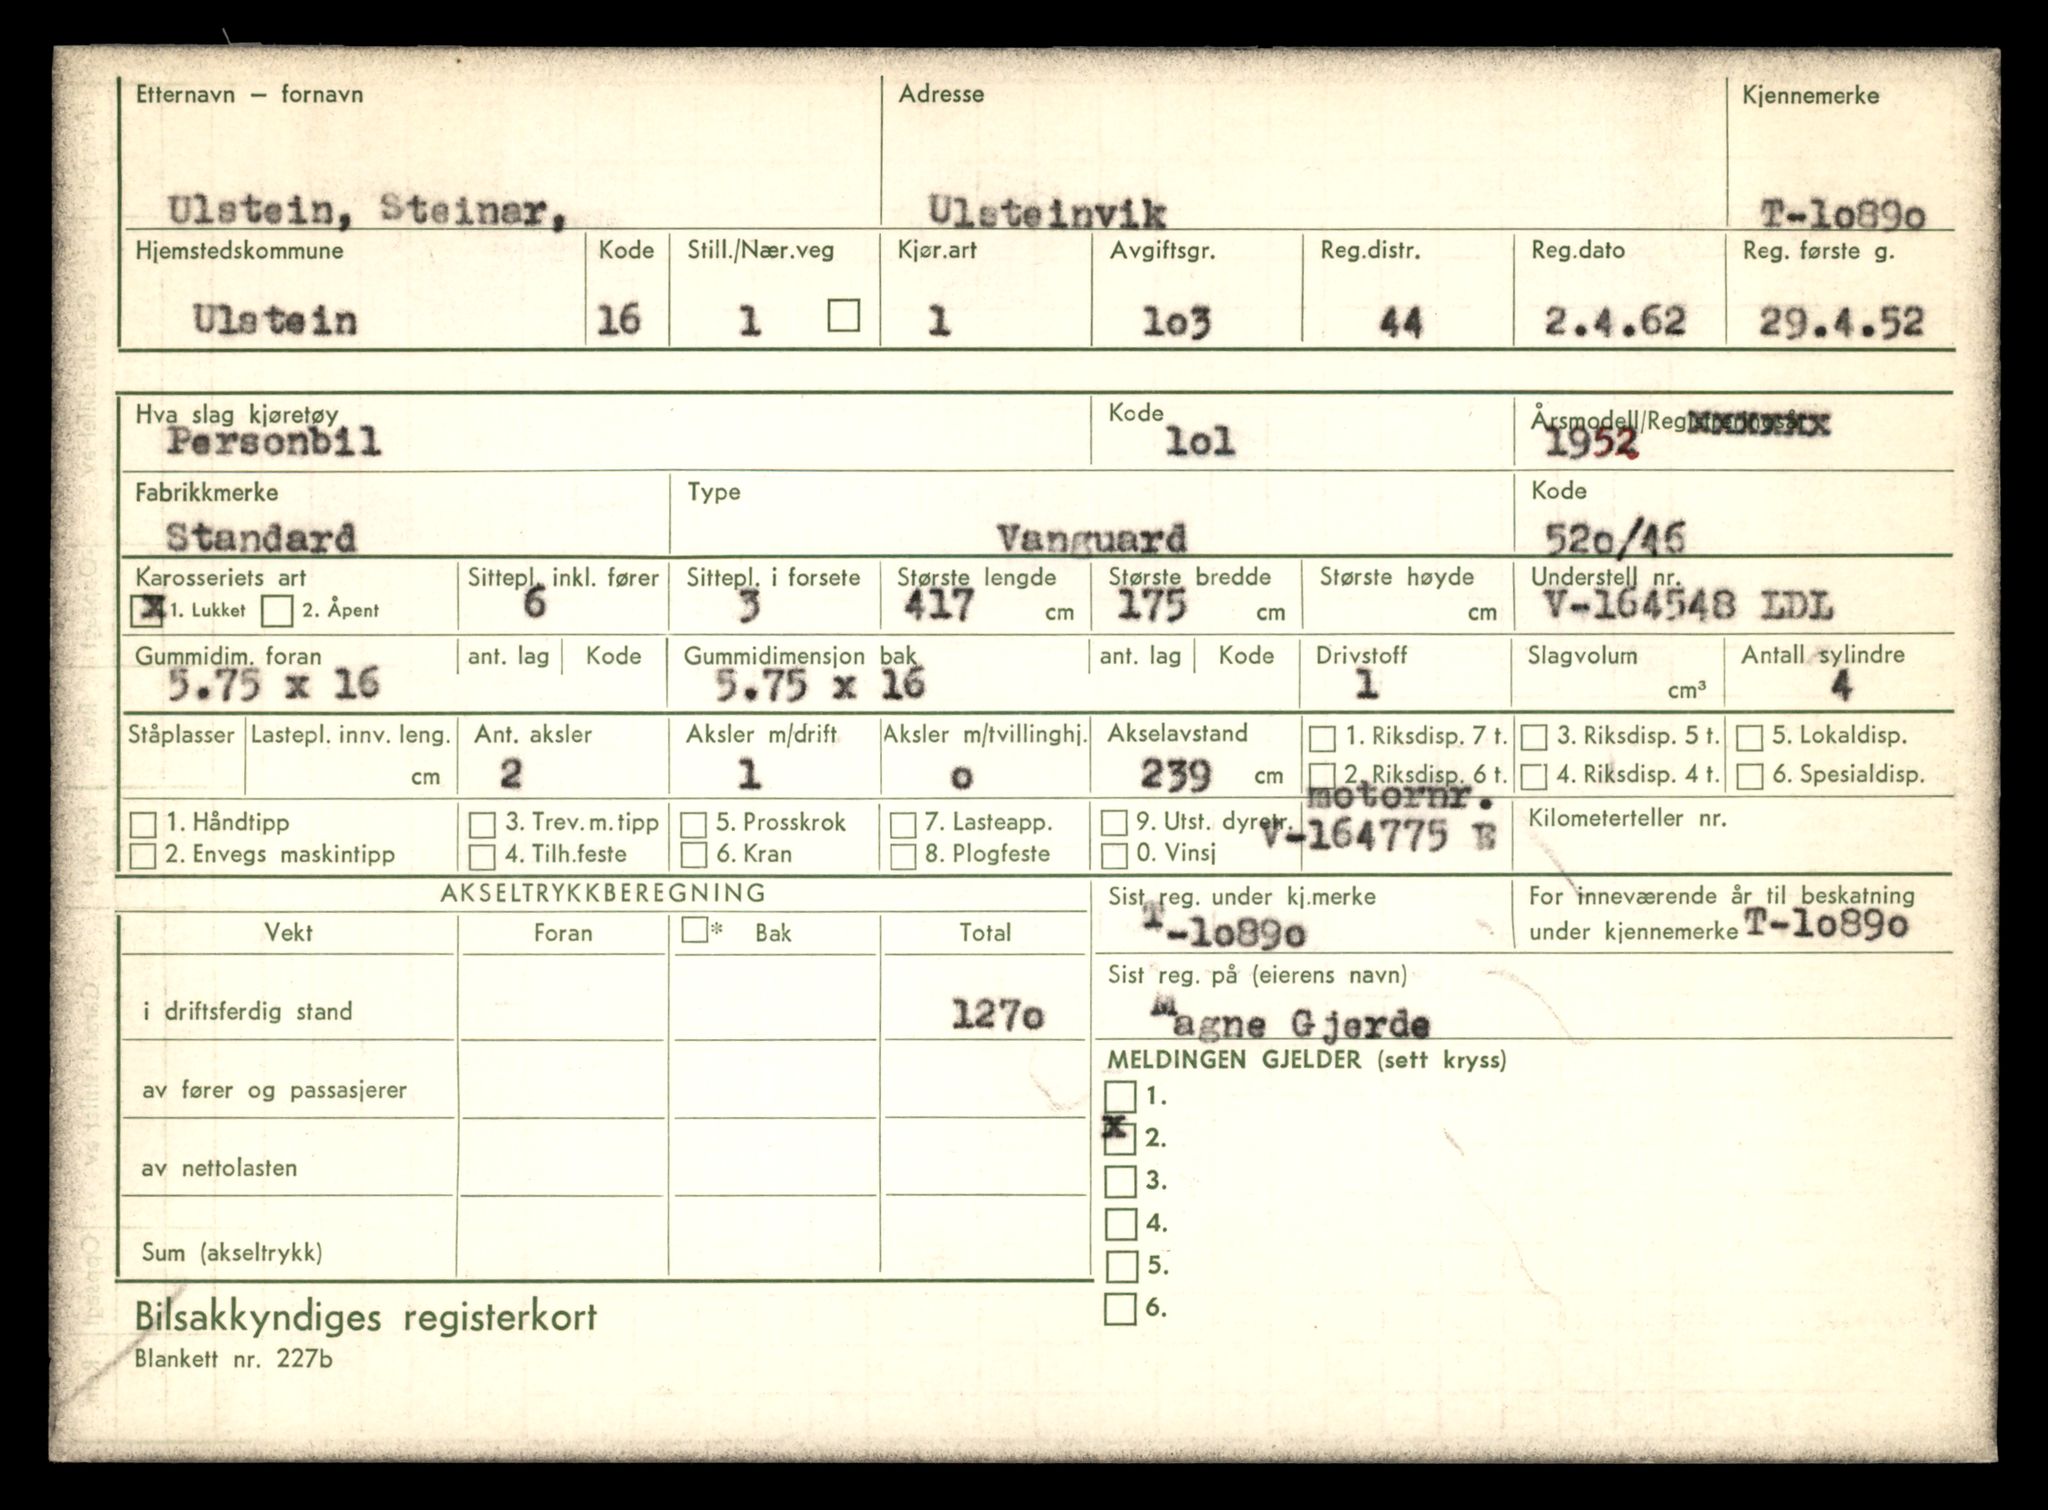 Etternavn – fornavn Adresse Kjennemerke
Ulstein, Steinar, Ulsteinvik T-lo89o
Hjemstedskommune Kode Still./Nær.veg Kjør.art Avgiftsgr. Reg.distr. Reg.dato Reg. første g.
Ulstein 16 1 1 lo3 44 2.4.62 29.4.52
Hva slag kjøretøy Kode Årsmodell/Registreringsår
Personbil lol 1952
Fabrikkmerke Type Kode
Standard Vanguard 52o/46
Karosseriets art Sittepl. inkl. fører Sittepl. i forsete Største lengde Største bredde Største høyde Understell nr.
x 1. Lukket 2. Åpent 6 3 417 cm 175 cm cm V-164548 LDL
Gummidim. foran ant. lag Kode Gummidimensjon bak ant. lag Kode Drivstoff Slagvolum Antall sylindre
5.75 x 16 5.75 x 16 1 cm³ 4
Ståplasser Lastepl. innv. leng. Ant. aksler Aksler m/drift Aksler m/tvillinghj. Akselavstand 1. Riksdisp. 7 t. 3. Riksdisp. 5 t. 5. Lokaldisp.
cm 2 1 o 239 cm 2. Riksdisp. 6 t. 4. Riksdisp. 4 t. 6. Spesialdisp.
motornr.
1. Håndtipp 3. Trev.m.tipp 5. Prosskrok 7. Lasteapp. 9. Utst. dyretr. V-164775 E Kilometerteller nr.
2. Envegs maskintipp 4. Tilh.feste 6. Kran 8. Plogfeste 0. Vinsj
AKSELTRYKKBEREGNING Sist reg. under kj.merke For inneværende år til beskatning
Vekt Foran * Bak Total T-lo89o under kjennemerke T-lo89o
Sist reg. på (eierens navn)
i driftsferdig stand 127o Magne Gjerde
MELDINGEN GJELDER (sett kryss)
av fører og passasjerer 1.
x 2.
av nettolasten 3.
4.
Sum (akseltrykk) 5.
6.
Bilsakkyndiges registerkort
Blankett nr. 227b